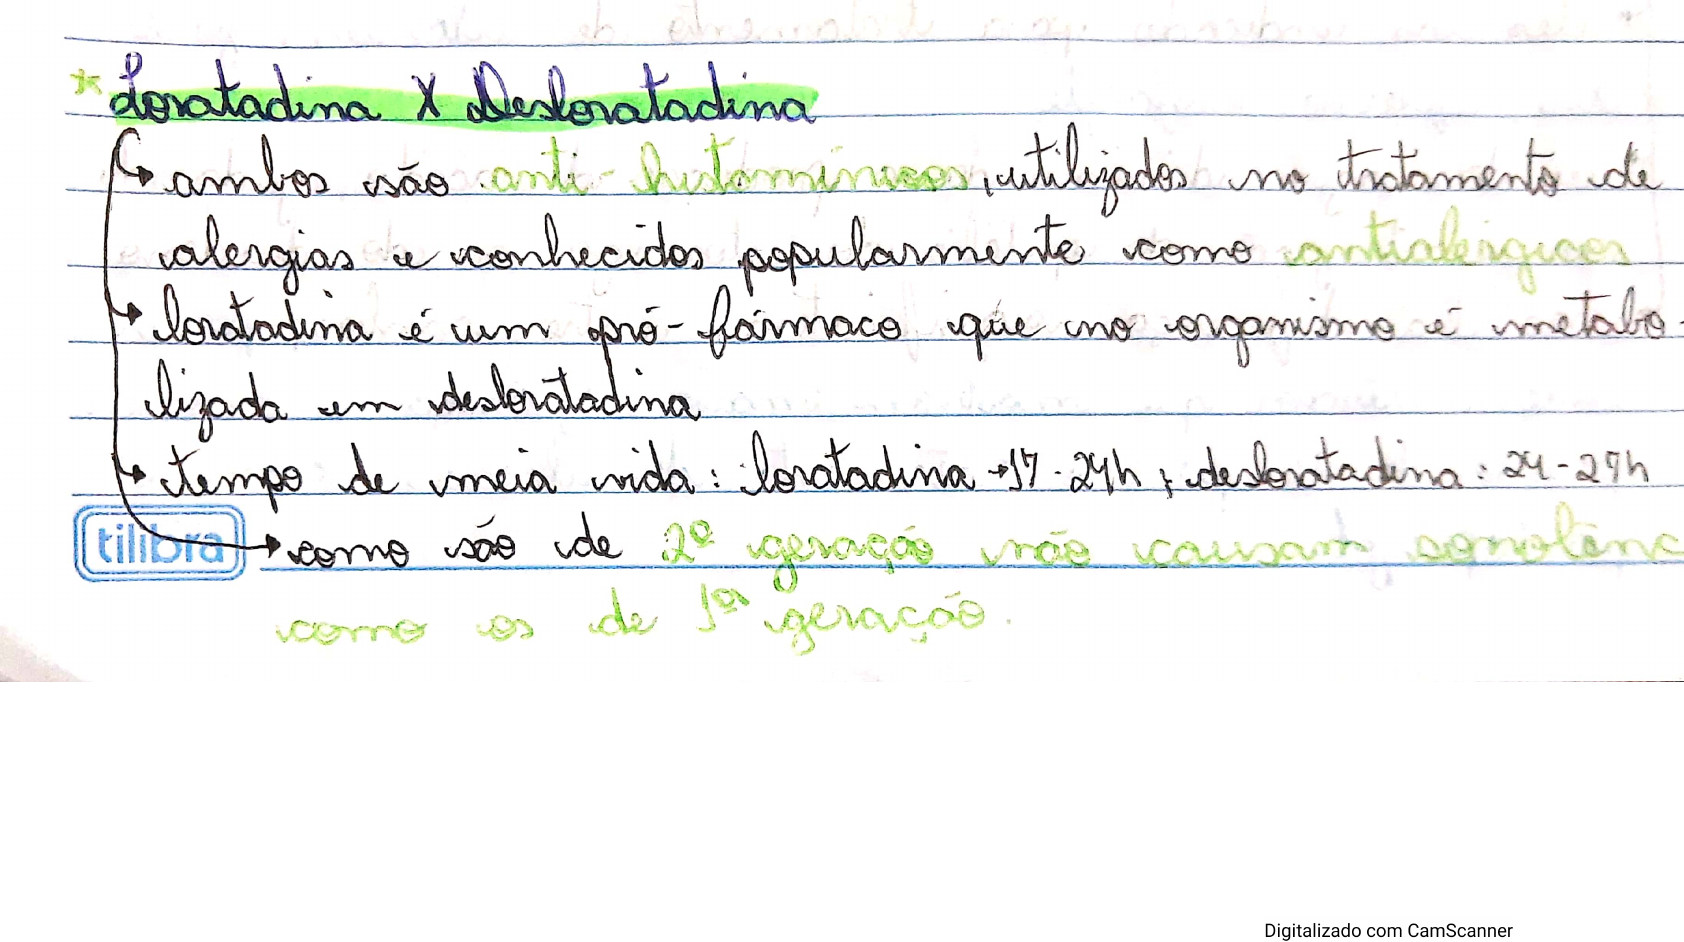 * Loratadina X Desloratadina
↳ ambos são anti-histamínicos, utilizados no tratamento de
alergias e conhecidos popularmente como antialérgicos
→ loratadina é um pró-fármaco que no organismo é metabo-
lizada em desloratadina
→ tempo de meia vida: loratadina → 17-24h; desloratadina: 24-27h
tilibra
→ como são de 2ª geração não causam sonolênc
como os de 1ª geração.
Digitalizado com CamScanner